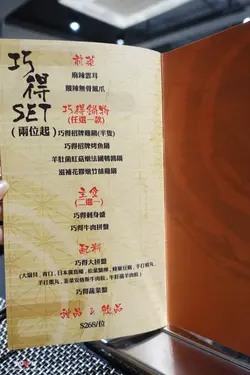 巧得SET
(兩位起)
前菜
麻辣雲耳
酸辣無骨鳳爪
巧得鍋物
(任選一款)
巧得招牌雞鍋(半隻)
巧得招牌烤魚鍋
羊肚菌紅菇燉法國鵪鶉鍋
滋補花膠燉竹絲雞鍋
主食
(二選一)
巧得刺身盛
巧得牛肉拼盤
配料
巧得大拼盤
巧得蔬菜盤
甜品 & 飲品
$268/位